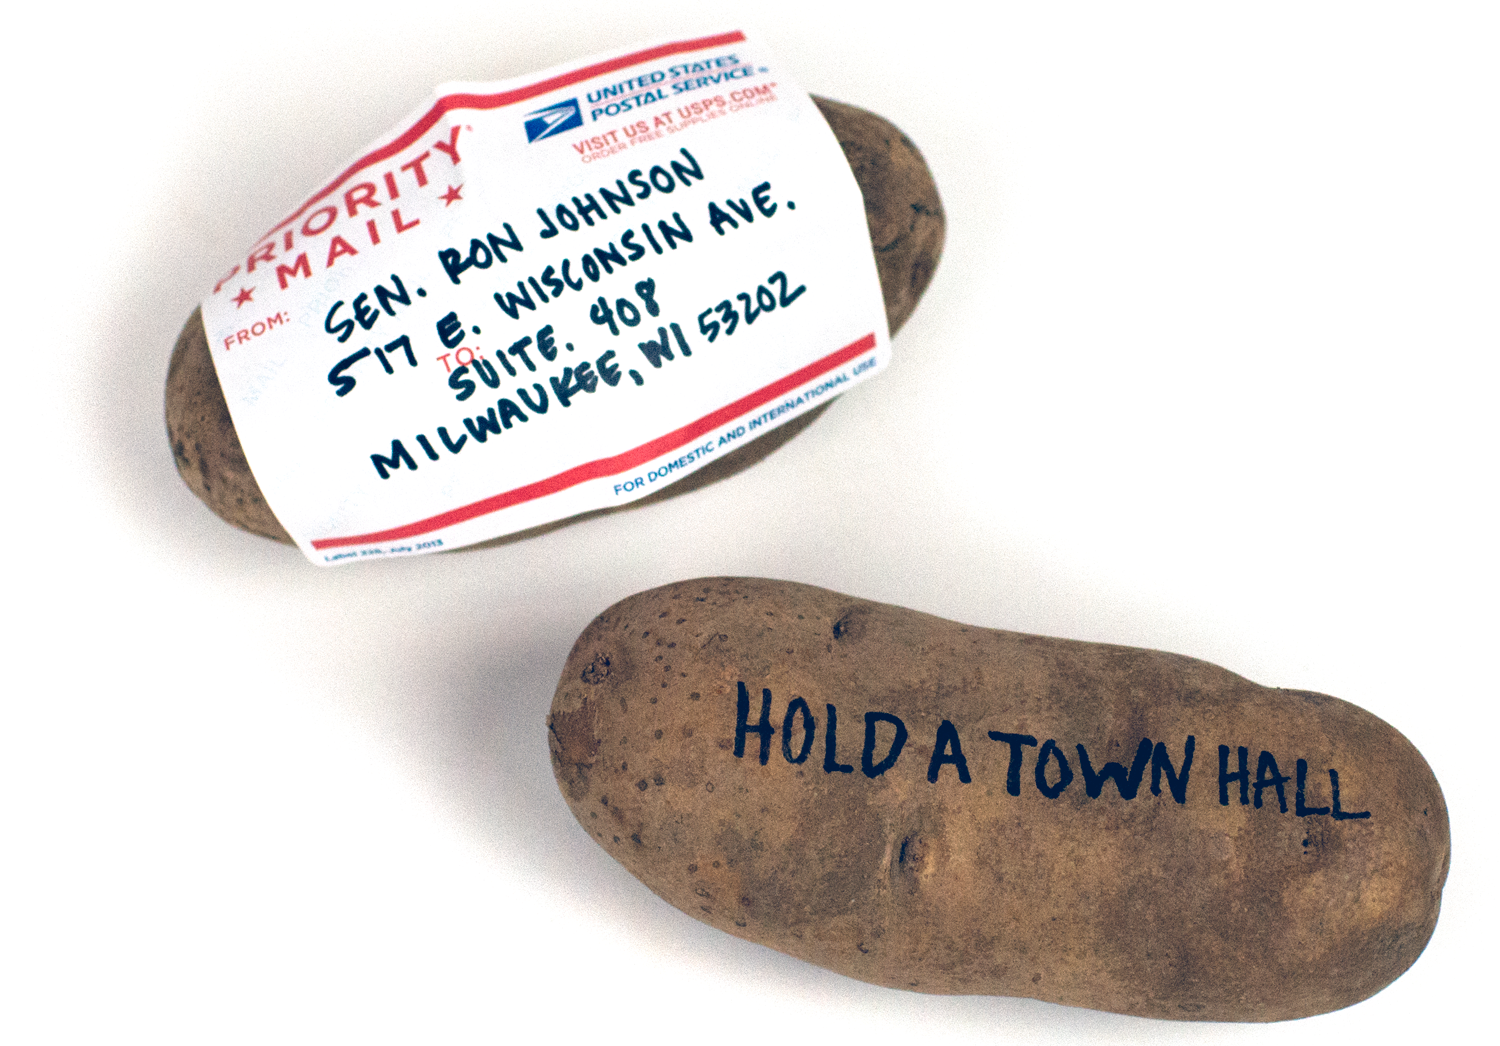 UNITED STATES
POSTAL SERVICE®
VISIT US AT USPS.COM®
ORDER FREE SUPPLIES ONLINE
PRIORITY
★ MAIL ★
FROM:
SEN. RON JOHNSON
517 E. WISCONSIN AVE.
TO:
SUITE. 408
MILWAUKEE, WI 53202
FOR DOMESTIC AND INTERNATIONAL USE
Label 228, July 2013
HOLD A TOWN HALL